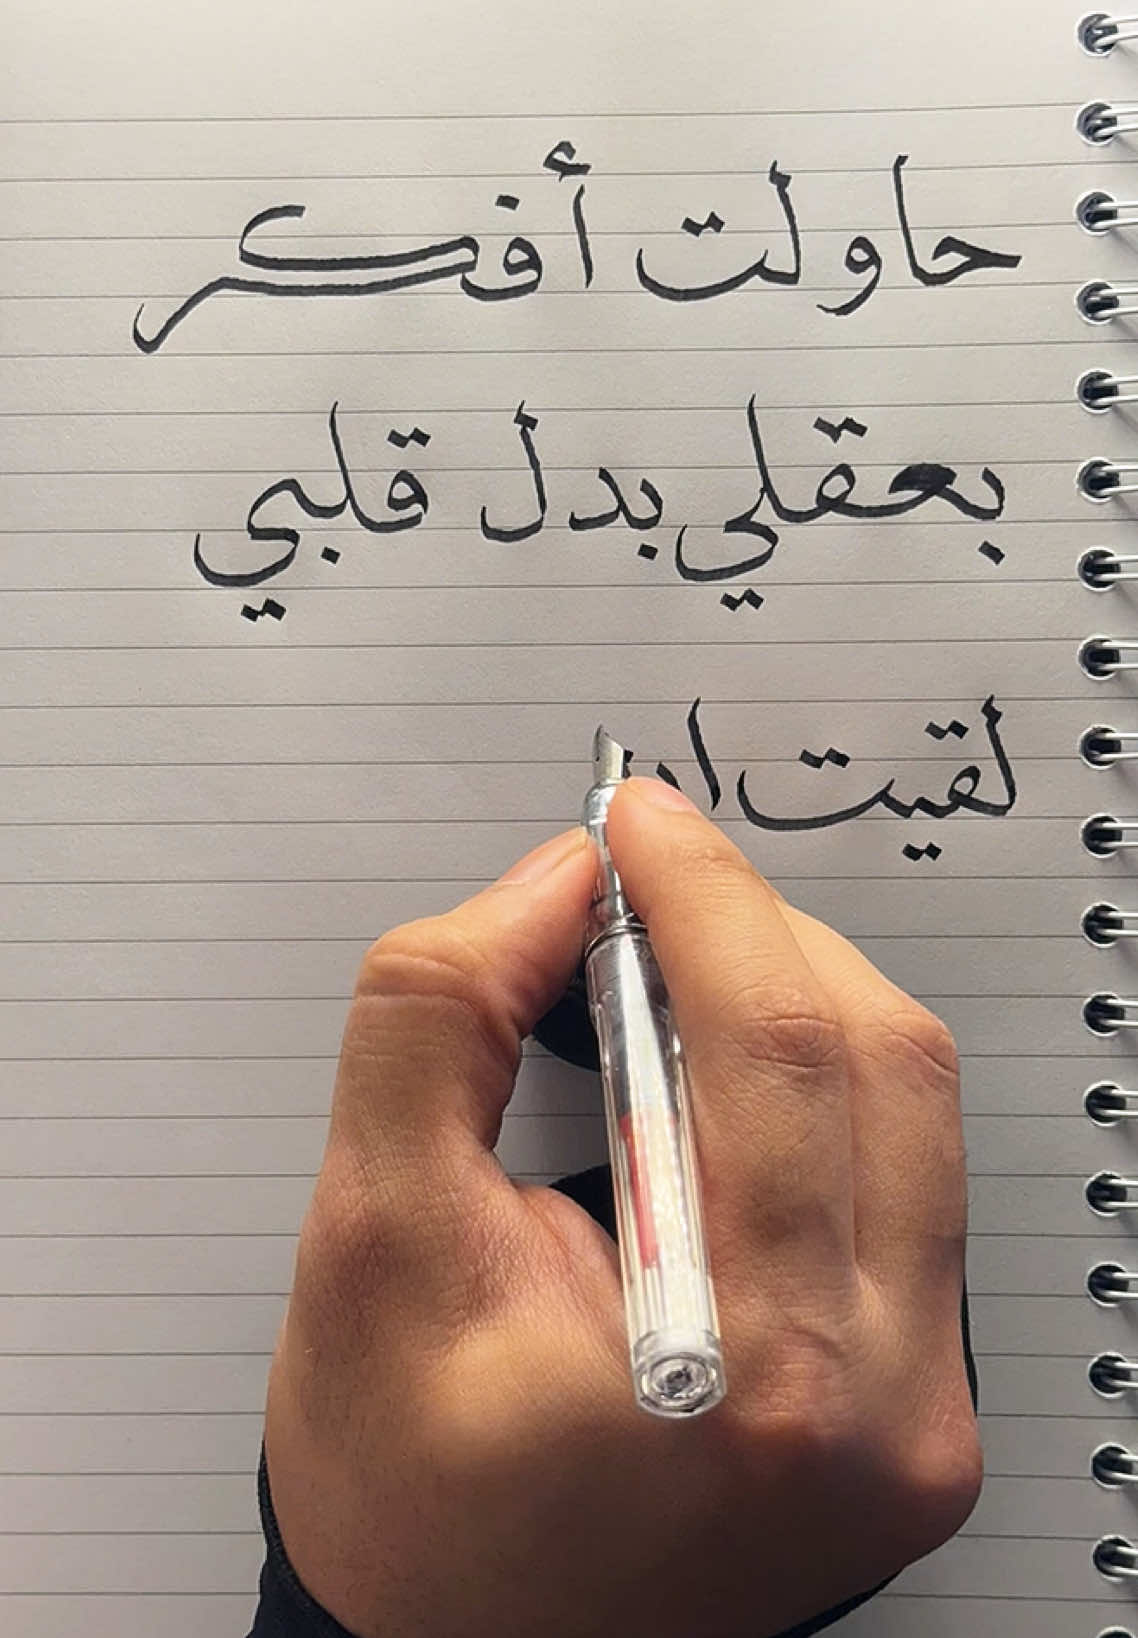 حاولت أفكر
بعقلي بدل قلبي
لقيت